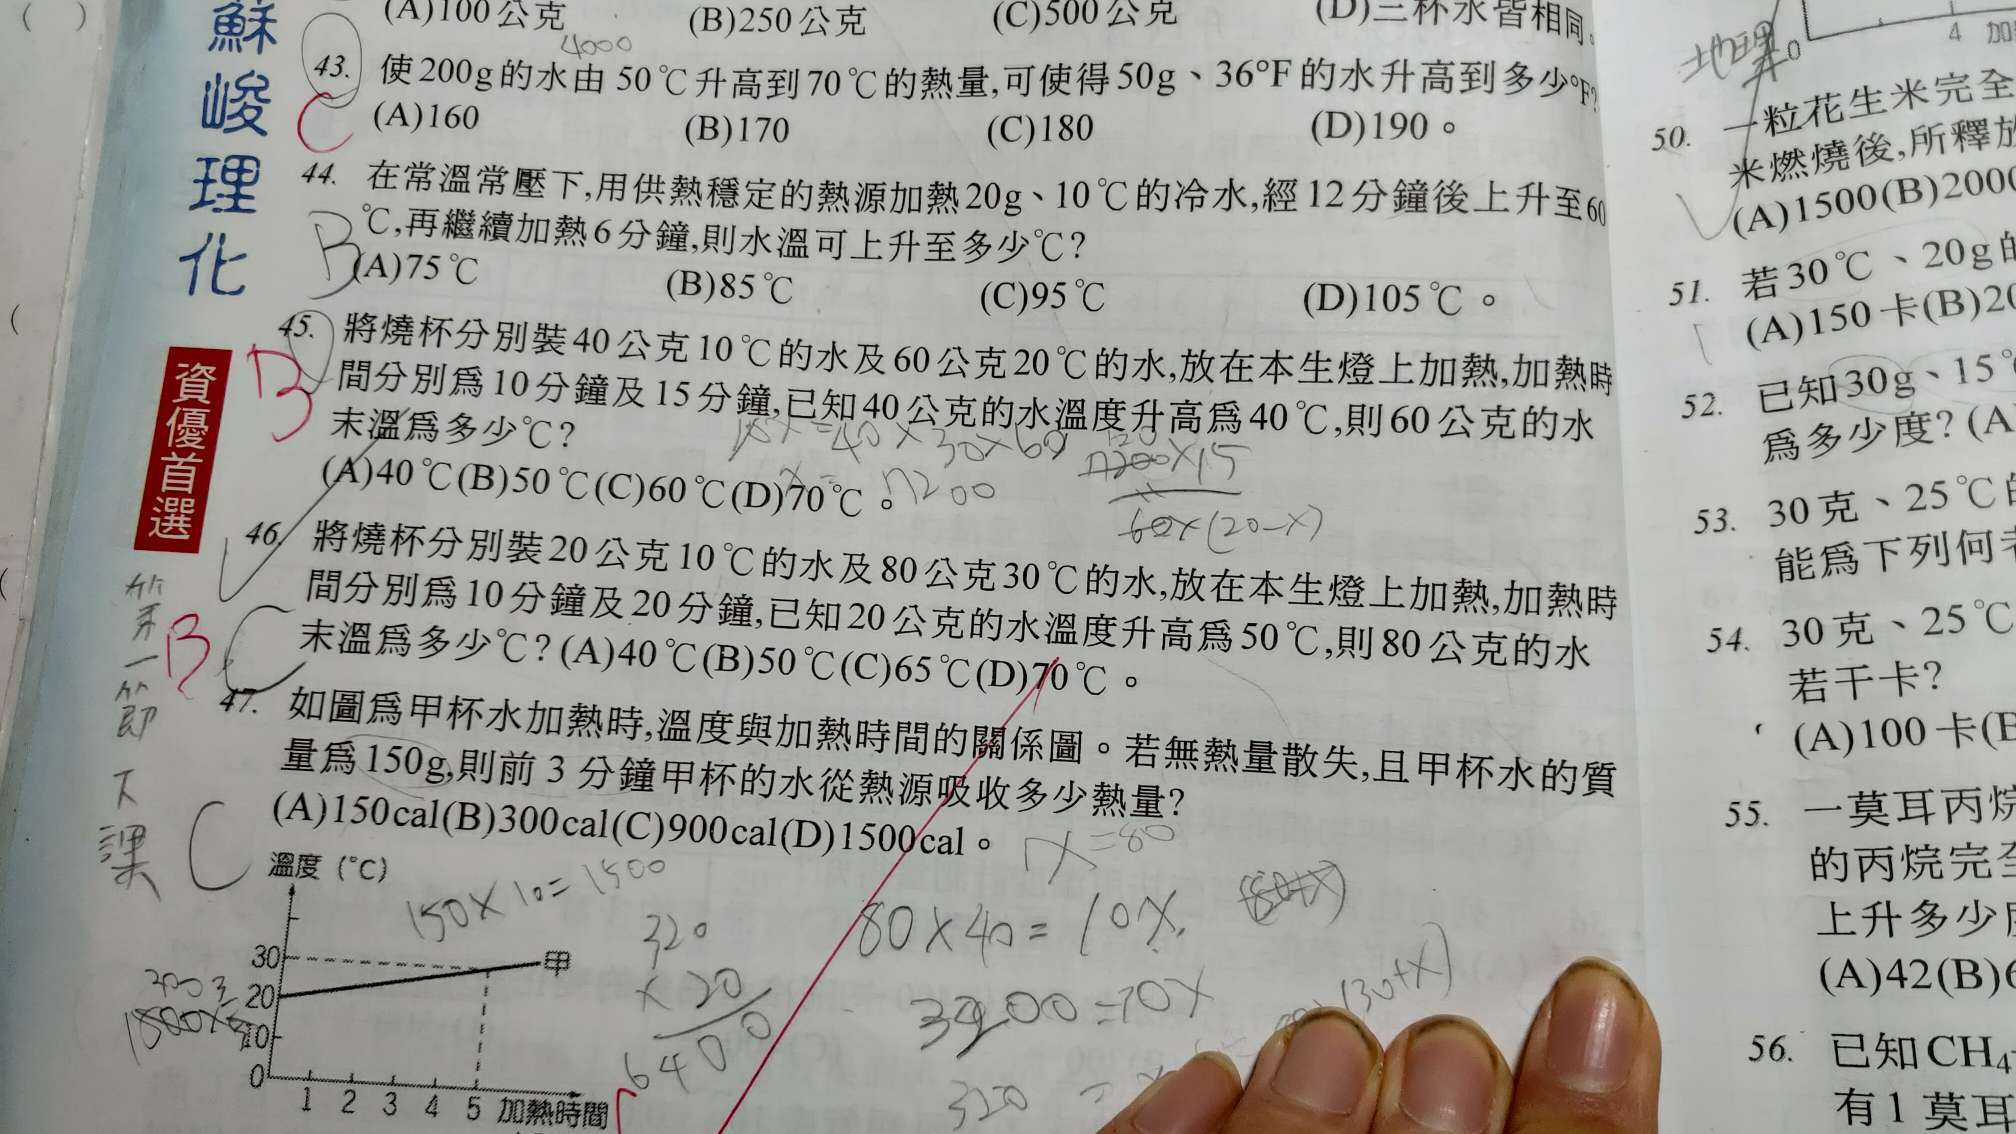 蘇峻理化
資優首選
第一節下課
(A)100公克 (B)250公克 (C)500公克 (D)三杯水皆相同。
4000
43. 使200g的水由50℃升高到70℃的熱量,可使得50g、36°F的水升高到多少°F?
C
(A)160 (B)170 (C)180 (D)190。
44. 在常溫常壓下,用供熱穩定的熱源加熱20g、10℃的冷水,經12分鐘後上升至60
℃,再繼續加熱6分鐘,則水溫可上升至多少℃?
B
(A)75℃ (B)85℃ (C)95℃ (D)105℃。
45. 將燒杯分別裝40公克10℃的水及60公克20℃的水,放在本生燈上加熱,加熱時
B
間分別為10分鐘及15分鐘,已知40公克的水溫度升高為40℃,則60公克的水
末溫為多少℃?
(A)40℃(B)50℃(C)60℃(D)70℃。
7200
60×(20-x)
46. 將燒杯分別裝20公克10℃的水及80公克30℃的水,放在本生燈上加熱,加熱時
間分別為10分鐘及20分鐘,已知20公克的水溫度升高為50℃,則80公克的水
B
末溫為多少℃?(A)40℃(B)50℃(C)65℃(D)70℃。
47. 如圖為甲杯水加熱時,溫度與加熱時間的關係圖。若無熱量散失,且甲杯水的質
量為150g,則前3分鐘甲杯的水從熱源吸收多少熱量?
C
(A)150cal(B)300cal(C)900cal(D)1500cal。
x=80
溫度(℃)
150×10=1500
30
20
10
0
甲
1 2 3 4 5 加熱時間
320
×20
6400
80×40=10x
3200=10x
320
地理
0
4 加
50. 一粒花生米完全
米燃燒後,所釋放
(A)1500(B)2000
51. 若30℃、20g的
(A)150卡(B)20
52. 已知30g、15℃
為多少度?(A
53. 30克、25℃的
能為下列何者
54. 30克、25℃
若干卡?
(A)100卡(B
55. 一莫耳丙烷
的丙烷完全
上升多少度
(A)42(B)6
56. 已知CH₄
有1莫耳